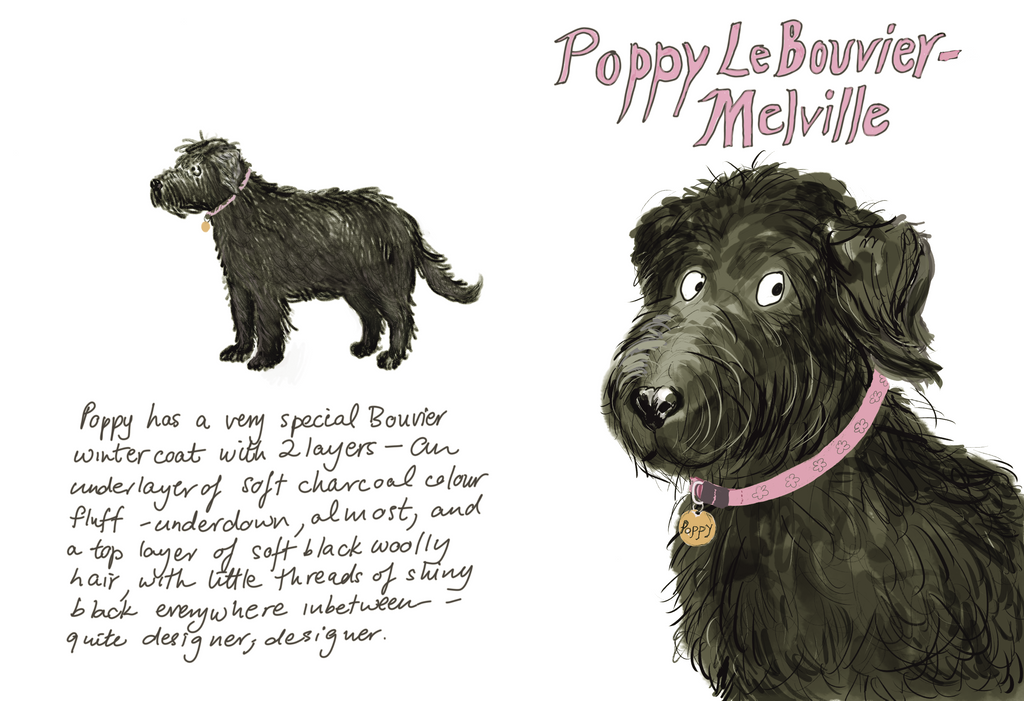 Poppy Le Bouvier-
Melville
Poppy has a very special Bouvier
winter coat with 2 layers – an
underlayer of soft charcoal colour
fluff - underdown, almost, and
a top layer of soft black woolly
hair, with little threads of shiny
black everywhere inbetween –
quite designer, designer.
Poppy